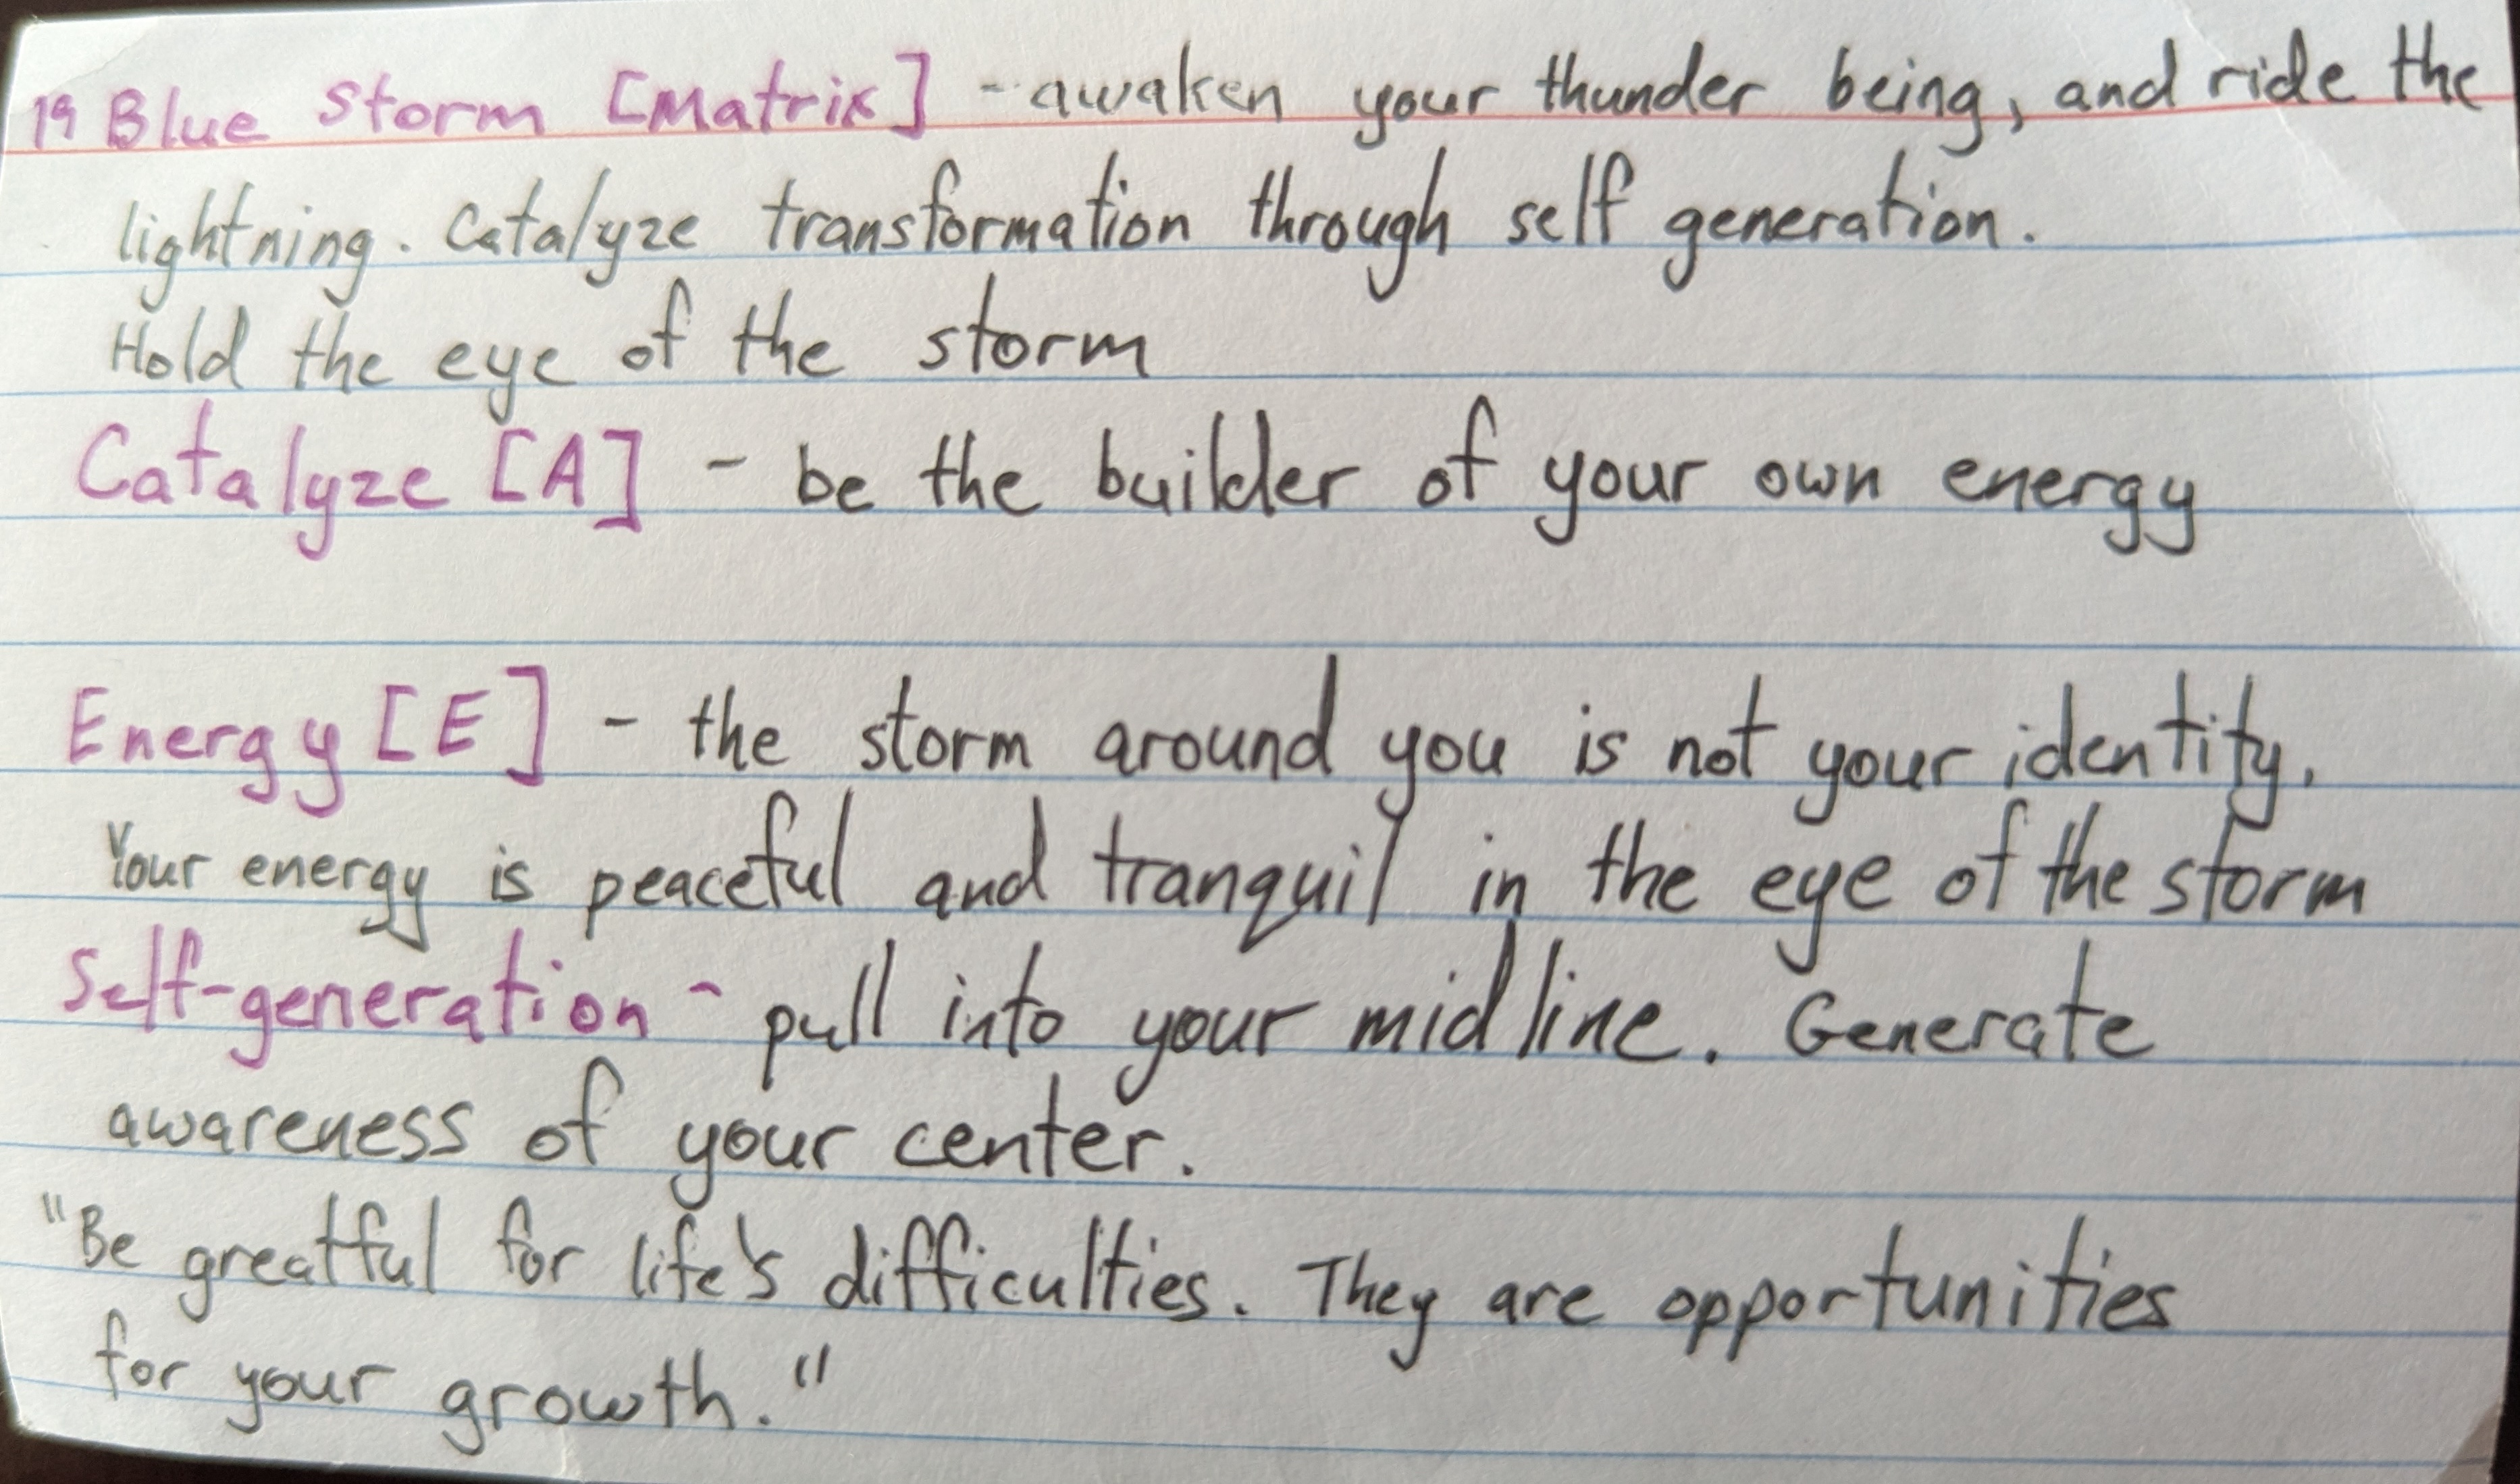 19 Blue Storm [Matrix] - awaken your thunder being, and ride the
lightning. Catalyze transformation through self generation.
Hold the eye of the storm
Catalyze [A] - be the builder of your own energy
Energy [E] - the storm around you is not your identity.
Your energy is peaceful and tranquil in the eye of the storm
Self-generation - pull into your midline. Generate
awareness of your center.
"Be greatful for life's difficulties. They are opportunities
for your growth."